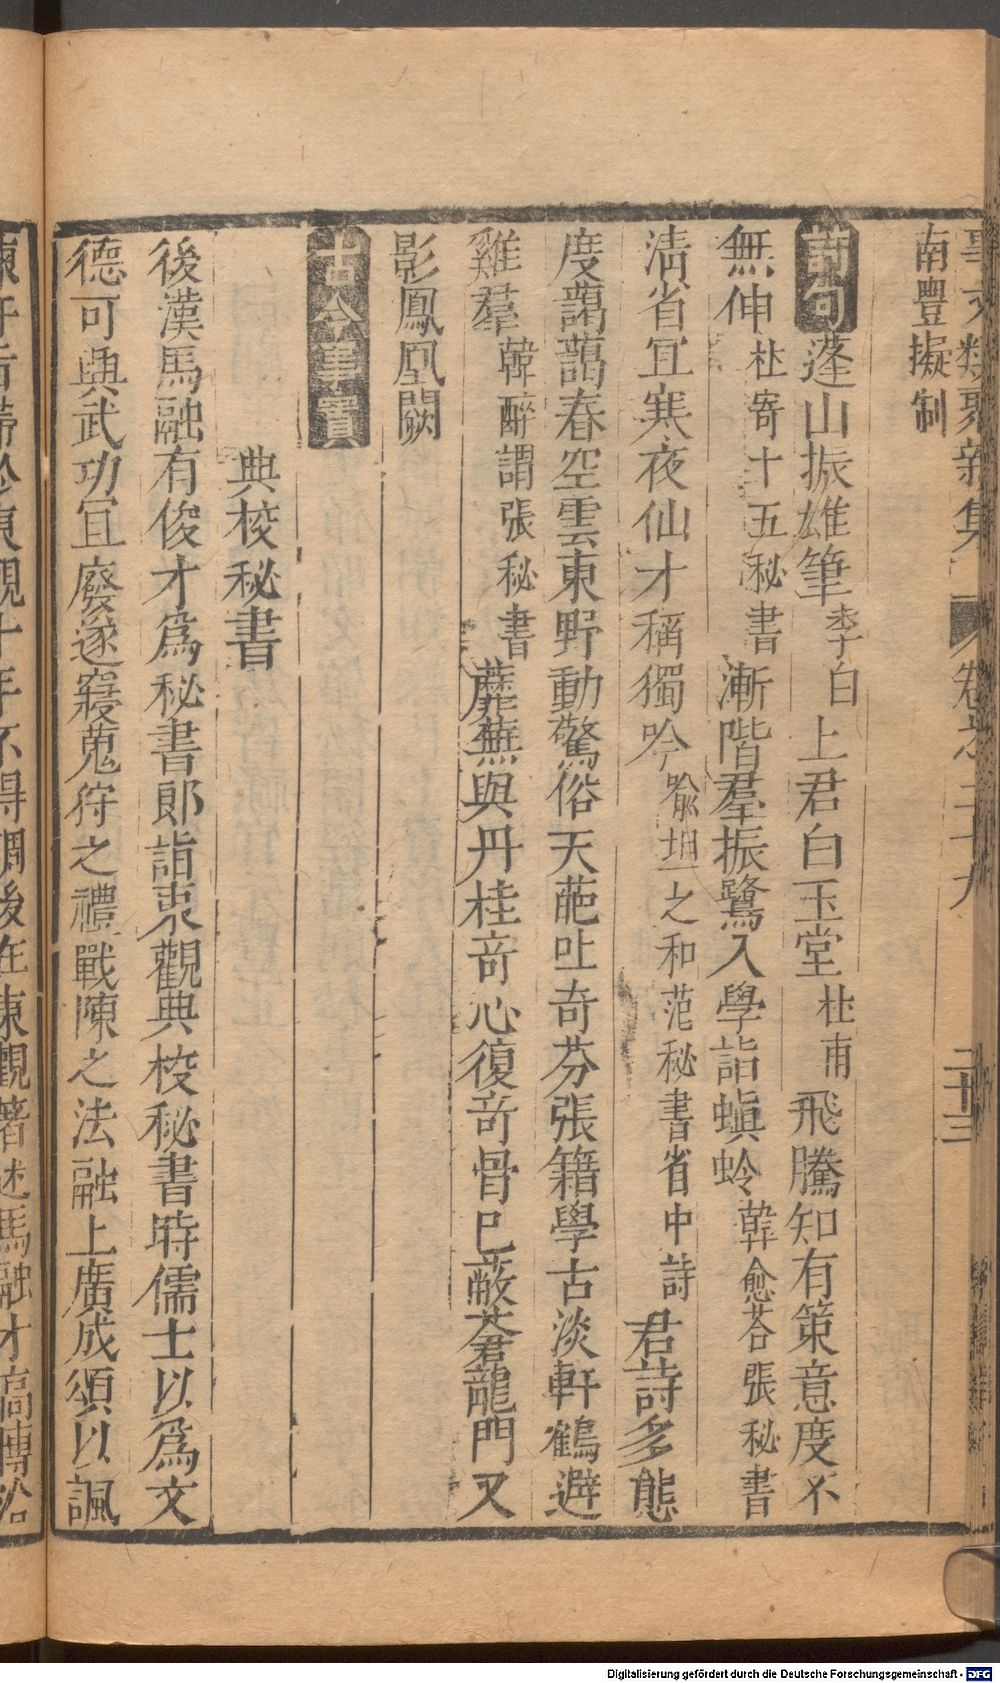 事文類聚新集 卷之三十九 二十三
南豐擬制
詩句 蓬山振雄筆李白上君白玉堂杜甫飛騰知有策意度不
無伸杜寄十五秘書漸階羣振鷺入學詣螟蛉韓愈荅張秘書
淸省冝寒夜仙才稱獨吟喻坦之和范秘書省中詩君詩多態
度藹藹春空雲東野動驚俗天葩吐奇芬張籍學古淡軒鶴避
雞羣韓醉謂張秘書蘼蕪與丹桂竒心復竒骨巳蔽蒼龍門又
影鳳凰闕
古今事實
典校秘書
後漢馬融有俊才爲秘書郞詣東觀典校秘書時儒士以爲文
德可興武功冝廢遂寢蒐狩之禮戰陳之法融上廣成頌以諷
諫忤 滯於東觀十年不得調後在東觀著述馬融才高博洽
Digitalisierung gefördert durch die Deutsche Forschungsgemeinschaft - DFG